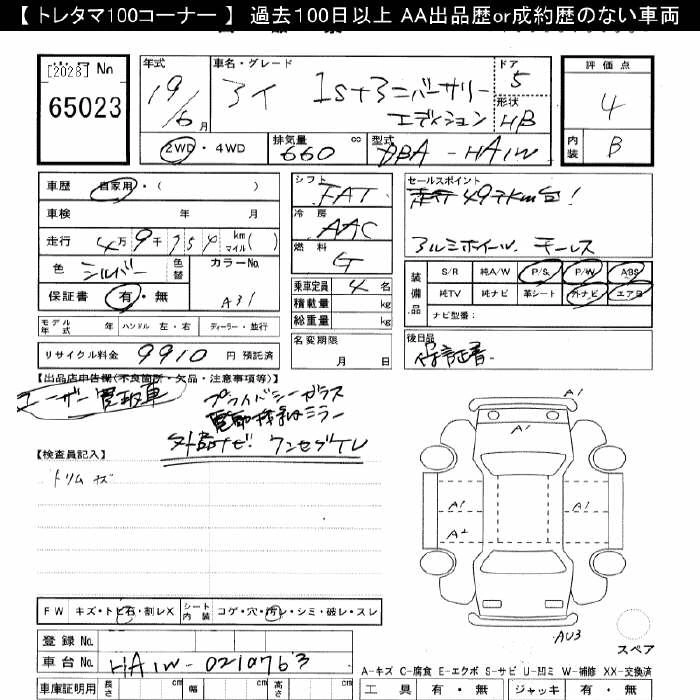 【 トレタマ100コーナー 】 過去100日以上 AA出品歴or成約歴のない車両
[2028] No
65023
年式
19/6 月
車名・グレード
アイ 1st+3ニバーサリー
エディション
ドア
5
形状
HB
2WD・4WD
排気量
660 cc
型式
DBA-HA1W
評価点
4
内装
B
車歴 自家用・( )
車検 年 月
走行 4万9千754 km マイル( )
色 シルバー 色替
カラーNo.
A31
保証書 有・無
モデル年式 年 ハンドル 左・右 ディーラー・並行
リサイクル料金 9910 円 預託済
シフト
FAT
冷房
AAC
燃料
G
乗車定員 4 名
積載量 kg
総重量 kg
名変期限
月 日
セールスポイント
走行49千km台!
アルミホイール キーレス
装備品
S/R 純A/W P/S P/W ABS
純TV 純ナビ 革シート 外ナビ エアB
ナビ型番:
後日品
保証書
【出品店申告欄(不良箇所・欠品・注意事項等)】
ユーザー買取車
プライバシーガラス
電動格納ミラー
外品ナビ! ワンセグTV
【検査員記入】
トリムキズ
A1
A1
A1
A1
A2
AU3
スペア
FW キズ・トビ石・割レX
シート内装 コゲ・穴・汚レ・シミ・破レ・スレ
登録No.
車台No. HA1W-0210763
車庫証明用 長さ cm 幅 cm 高さ cm
A-キズ C-腐食 E-エクボ S-サビ U-凹ミ W-補修 XX-交換済
工具 有・無 ジャッキ 有・無